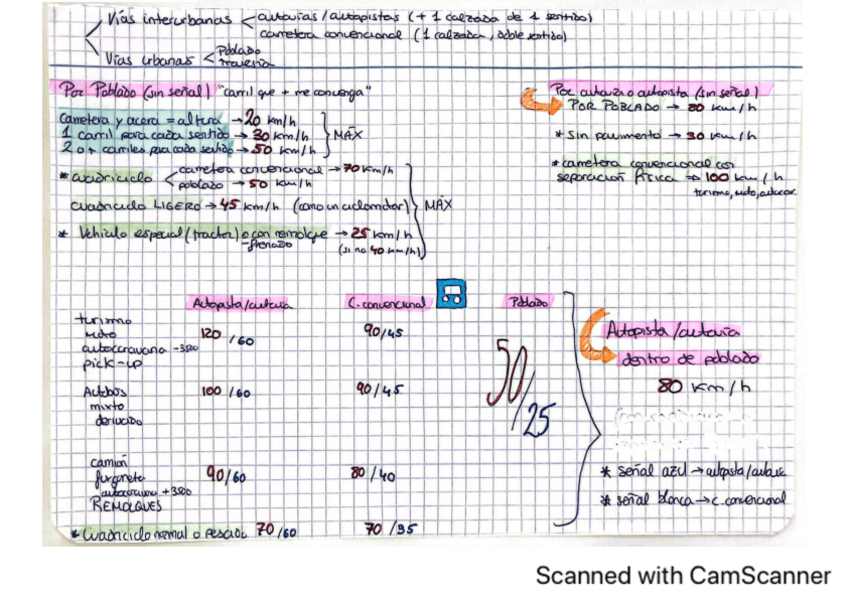 Vías interurbanas < autovías/autopistas (+ 1 calzada de 1 sentido)
carretera convencional (1 calzada, doble sentido)
Vías urbanas < Poblado
travesía
Por Poblado (sin señal) "carril que + me convenga"
carretera y acera = altura → 20 km/h
1 carril para cada sentido → 30 km/h } MÁX
2 o + carriles para cada sentido → 50 km/h
* cuadriciclo < carretera convencional → 70 km/h
poblado → 50 km/h
cuadriciclo LIGERO → 45 km/h (como un ciclomotor) } MÁX
* Vehículo especial (tractor) o con remolque → 25 km/h
-frenado (si no 40 km/h)
Por autovía o autopista (sin señal)
POR POBLADO → 80 km/h
* Sin pavimento → 30 km/h
* carretera convencional con
separación física → 100 km/h
turismo, moto, autocar
Autopista/autovía C. convencional Poblado
turismo
moto
autocaravana -3500
pick-up
120/60 90/45
Autobús
mixto
derivado
100/60 90/45
50/25
camión
furgoneta
autocaravana +3500
REMOLQUES
90/60 80/40
* Cuadriciclo normal o pesado 70/60 70/35
Autopista/autovía
dentro de poblado
80 km/h
* señal azul → autopista/autovía
* señal blanca → c. convencional
Scanned with CamScanner